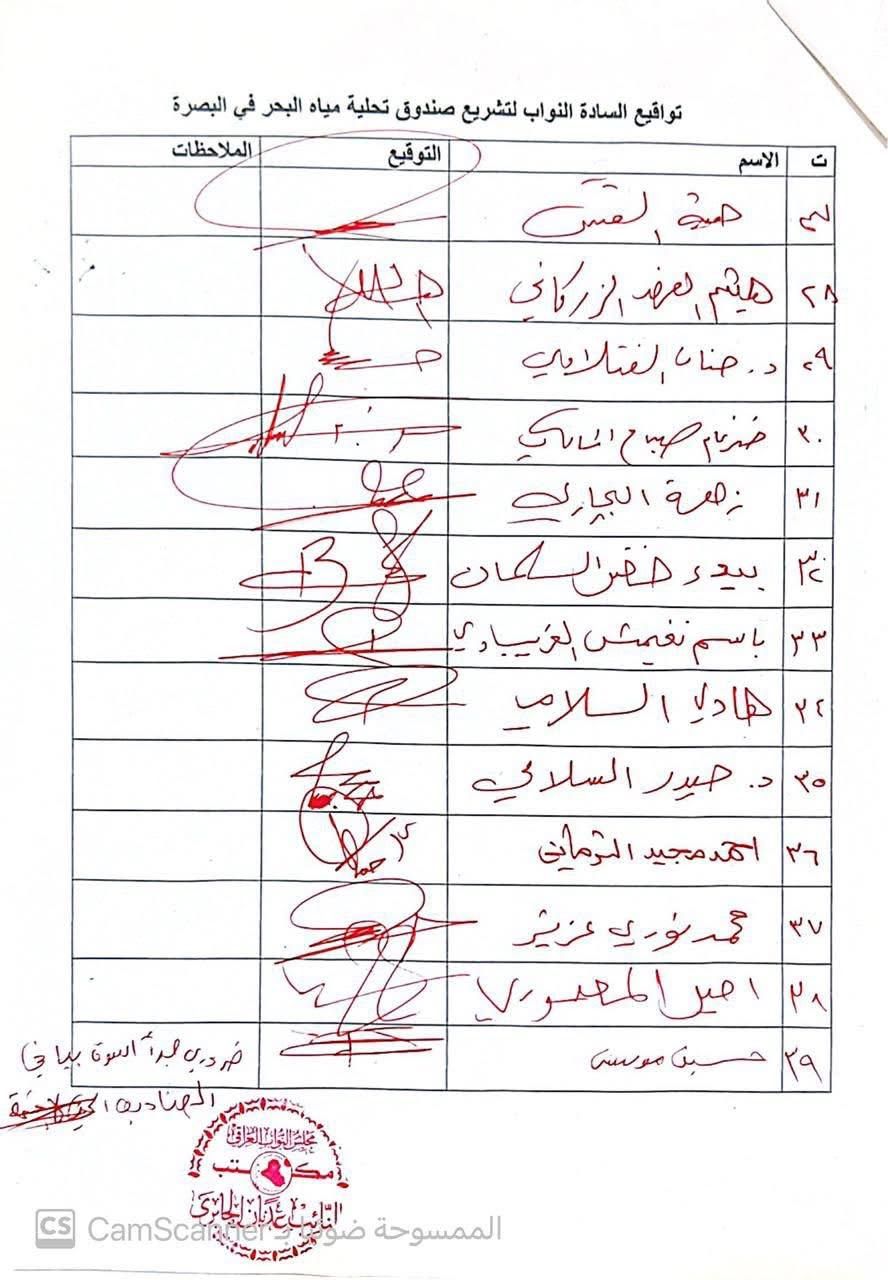 تواقيع السادة النواب لتشريع صندوق تحلية مياه البحر في البصرة
ت الاسم التوقيع الملاحظات
٢٧
٢٨ هيثم الزركاني
٢٩ د. حنان الفتلاوي
٣٠ ضرغام صباح المالكي
٣١ زهرة البجاري
٣٢ بيداء خضر السلمان
٣٣ باسم نغيمش الغريباوي
٣٤ هادي السلامي
٣٥ د. حيدر السلامي
٣٦ احمد مجيد
٣٧ محمد نوري عزيز
٣٨ المنصوري
٣٩ حسين موسى ضروري
مجلس النواب العراقي
مكتب
النائب عدنان الجابري
CS CamScanner الممسوحة ضوئيا بـ